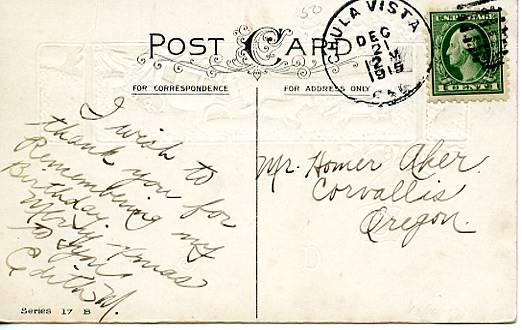 50
POST CARD
CHULA VISTA
DEC
21
2 M
1915
CAL
U.S. POSTAGE
1 CENT 1
FOR CORRESPONDENCE
FOR ADDRESS ONLY
I wish to
thank you for
Remembering my
Birthday.
Merry Xmas
to you
Edith M.
Mr. Homer Aker.
Corvallis
Oregon.
Series 17 B